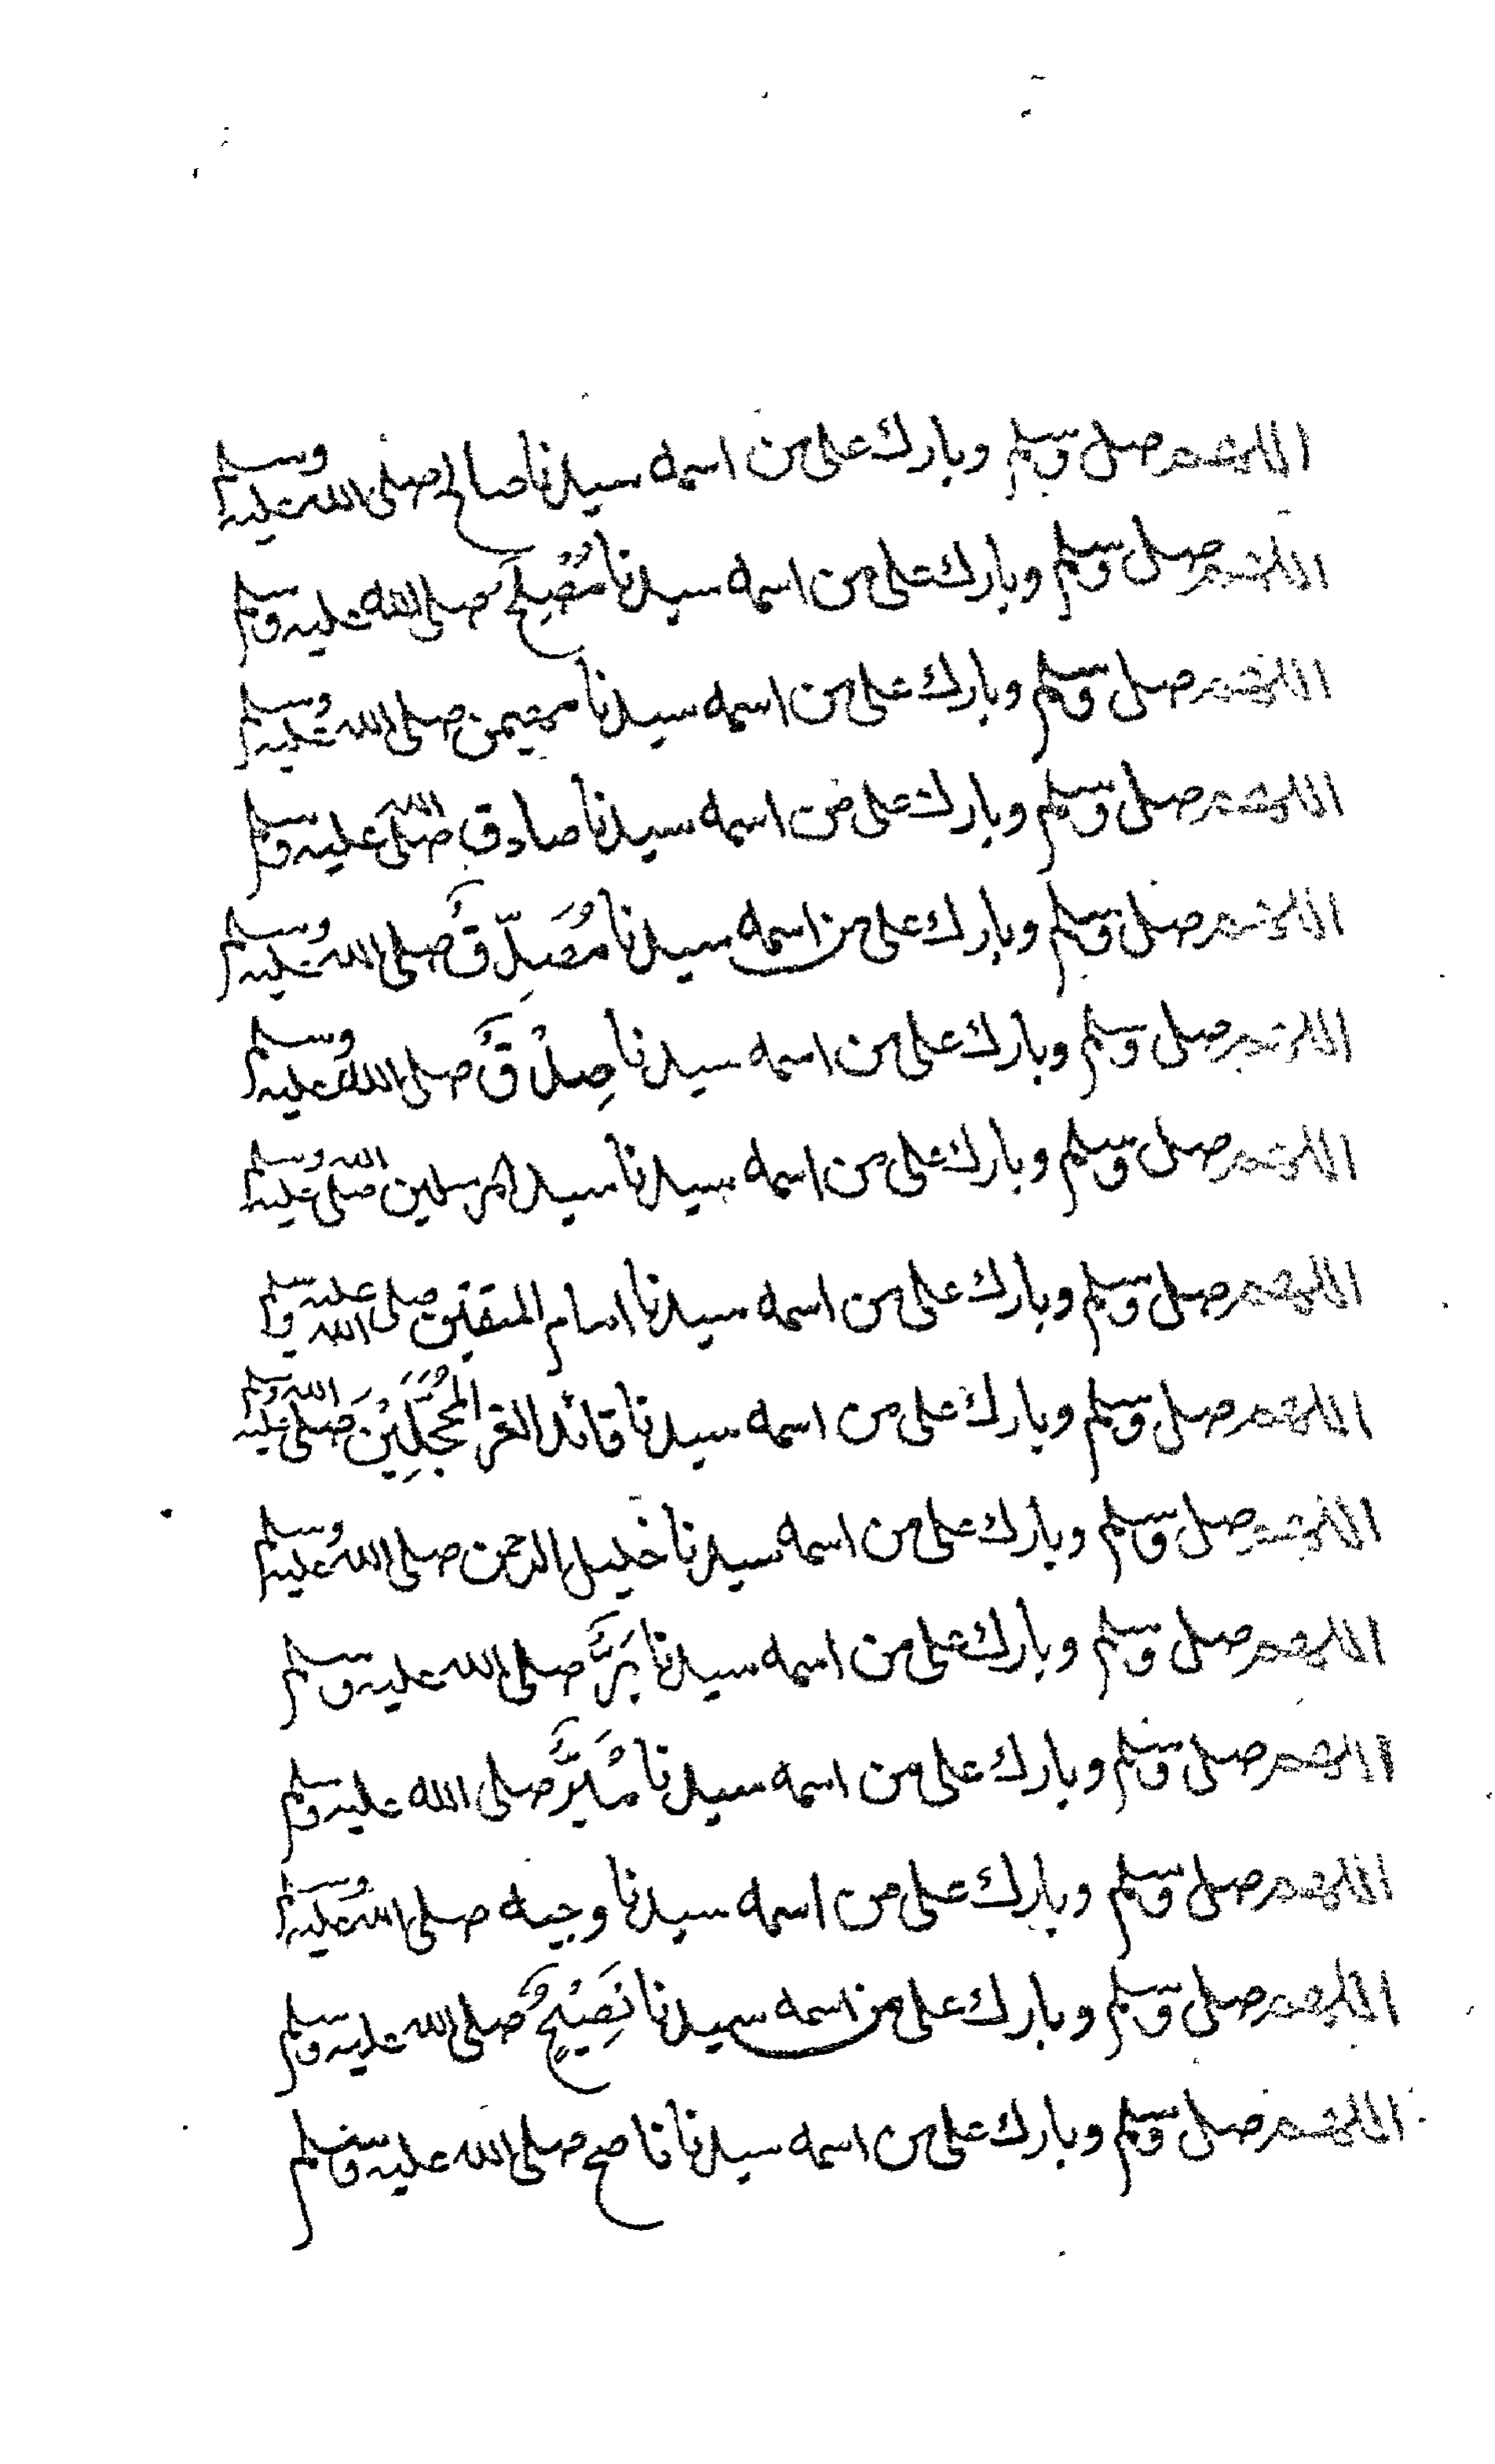 اللهم صل وسلم وبارك على من اسمه سيدنا صالح صلى الله عليه وسلم
اللهم صل وسلم وبارك على من اسمه سيدنا مُصْلِحٌ صلى الله عليه وسلم
اللهم صل وسلم وبارك على من اسمه سيدنا مهيمن صلى الله عليه وسلم
اللهم صل وسلم وبارك على من اسمه سيدنا صادق صلى الله عليه وسلم
اللهم صل وسلم وبارك على من اسمه سيدنا مُصَدِّقٌ صلى الله عليه وسلم
اللهم صل وسلم وبارك على من اسمه سيدنا صِدْقٌ صلى الله عليه وسلم
اللهم صل وسلم وبارك على من اسمه سيدنا سيد المرسلين صلى الله عليه وسلم
اللهم صل وسلم وبارك على من اسمه سيدنا امام المتقين صلى الله عليه وسلم
اللهم صل وسلم وبارك على من اسمه سيدنا قائد الغر المُحَجَّلِيْنَ صلى الله عليه وسلم
اللهم صل وسلم وبارك على من اسمه سيدنا خليل الرحمن صلى الله عليه وسلم
اللهم صل وسلم وبارك على من اسمه سيدنا بَرٌّ صلى الله عليه وسلم
اللهم صل وسلم وبارك على من اسمه سيدنا مَبَرٌّ صلى الله عليه وسلم
اللهم صل وسلم وبارك على من اسمه سيدنا وجيه صلى الله عليه وسلم
اللهم صل وسلم وبارك على من اسمه سيدنا نَصِيْحٌ صلى الله عليه وسلم
اللهم صل وسلم وبارك على من اسمه سيدنا ناصح صلى الله عليه وسلم